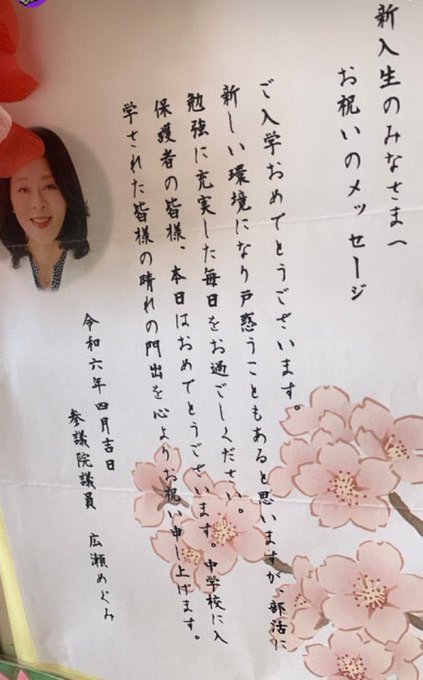 新入生のみなさまへ
お祝いのメッセージ
ご入学おめでとうございます。
新しい環境になり戸惑うこともあると思いますが、部活に
勉強に充実した毎日をお過ごしください。
保護者の皆様、本日はおめでとうございます。中学校に入
学された皆様の晴れの門出を心よりお祝い申し上げます。
令和六年四月吉日
参議院議員 広瀬めぐみ